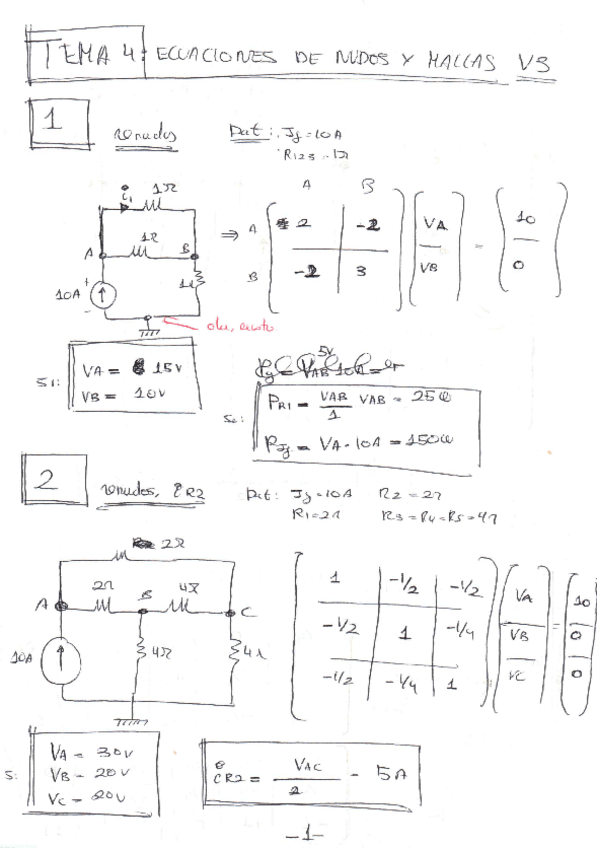 TEMA 4: ECUACIONES DE NUDOS Y MALLAS V3
1
xenudos
Dat: Jg=10A
R123=1Ω
i1
1Ω
A
1Ω
B
10A
+
-
1Ω
⇒
A B
A 2 -2
B -2 3
VA
VB
=
10
0
S1:
VA = 15V
VB = 10V
5V
Se:
PR1 = VAB/1 VAB = 25W
PJg = VA · 10A = 150W
2
xenudos, iR2
Dat: Jg=10A R2=2Ω
R1=2Ω R3=R4=R5=4Ω
2Ω
A
2Ω
B
4Ω
C
10A
4Ω
4Ω
1 -1/2 -1/2
-1/2 1 -1/4
-1/2 -1/4 1
VA
VB
VC
=
10
0
0
S:
VA = 30V
VB = 20V
VC = 20V
iR2 = VAC/2 = 5A
-1-